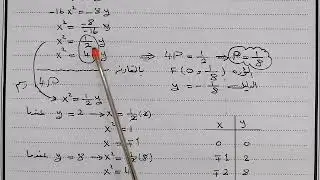 -16x² = -8y
x² = -8/-16 y
x² = 1/2 y ⟹ 4P = 1/2 ⟹ P = 1/8
x² = 4P y بالمقارنة F(0, 1/8) البؤرة
y = -1/8 الدليل
4P
x² = 1/2 y
عندما y = 2 → x² = 1/2 (2)
x² = 1
x = ∓1
عندما y = 8 → x² = 1/2 (8)
x² = 4
x y
0 0
∓1 2
∓2 8